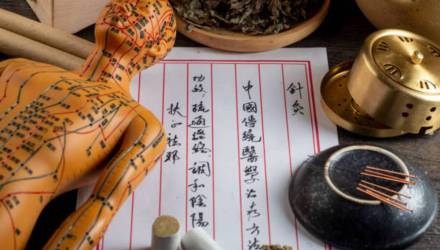 針灸
中國傳統醫學治療方法
功效：疏通經絡 調和陰陽
扶正祛邪